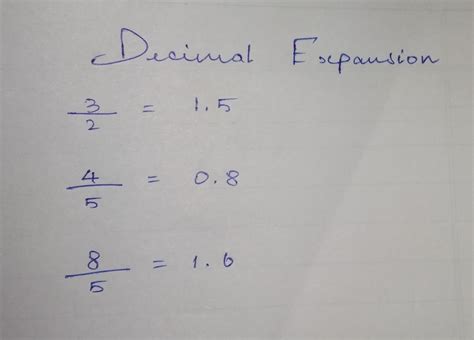 Decimal Expansion
3/2 = 1.5
4/5 = 0.8
8/5 = 1.6